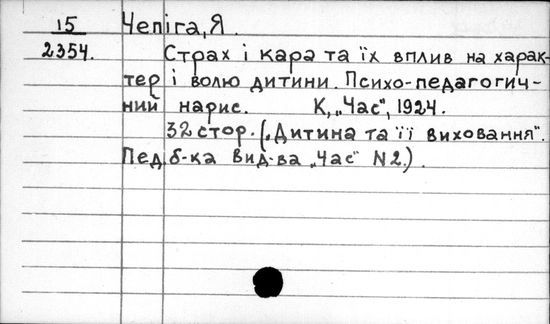 15 Чепіга, Я.
2354. Страх і кара та їх вплив на харак-
тер і волю дитини. Психо-педагогич-
ний нарис. К., „Час", 1924.
32 стор. („Дитина та її виховання".
Пед. б-ка Вид-ва „Час" N2.)